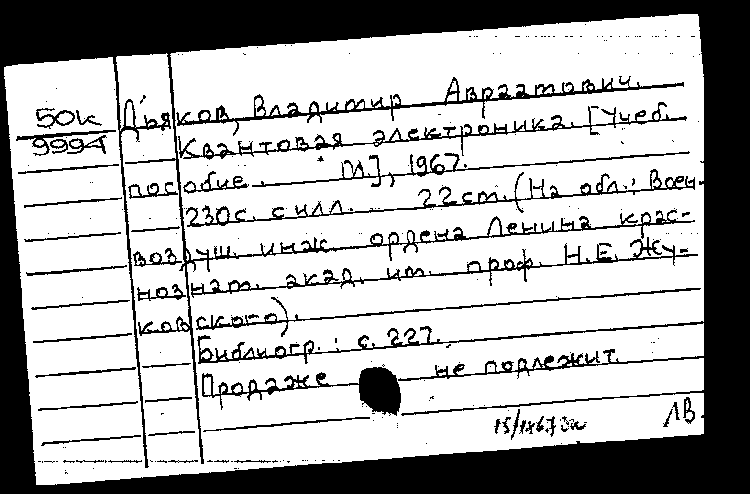 50к Дьяков, Владимир Авраамович.
999А Квантовая электроника. [Учеб.
пособие. М.], 1967.
230с. с илл. 22см. (На обл.: Воен.
воздуш. инж. ордена Ленина крас-
нознам. акад. им. проф. Н.Е. Жу-
ковского).
Библиогр.: с. 227.
Продаже не подлежит.
ЛВ.